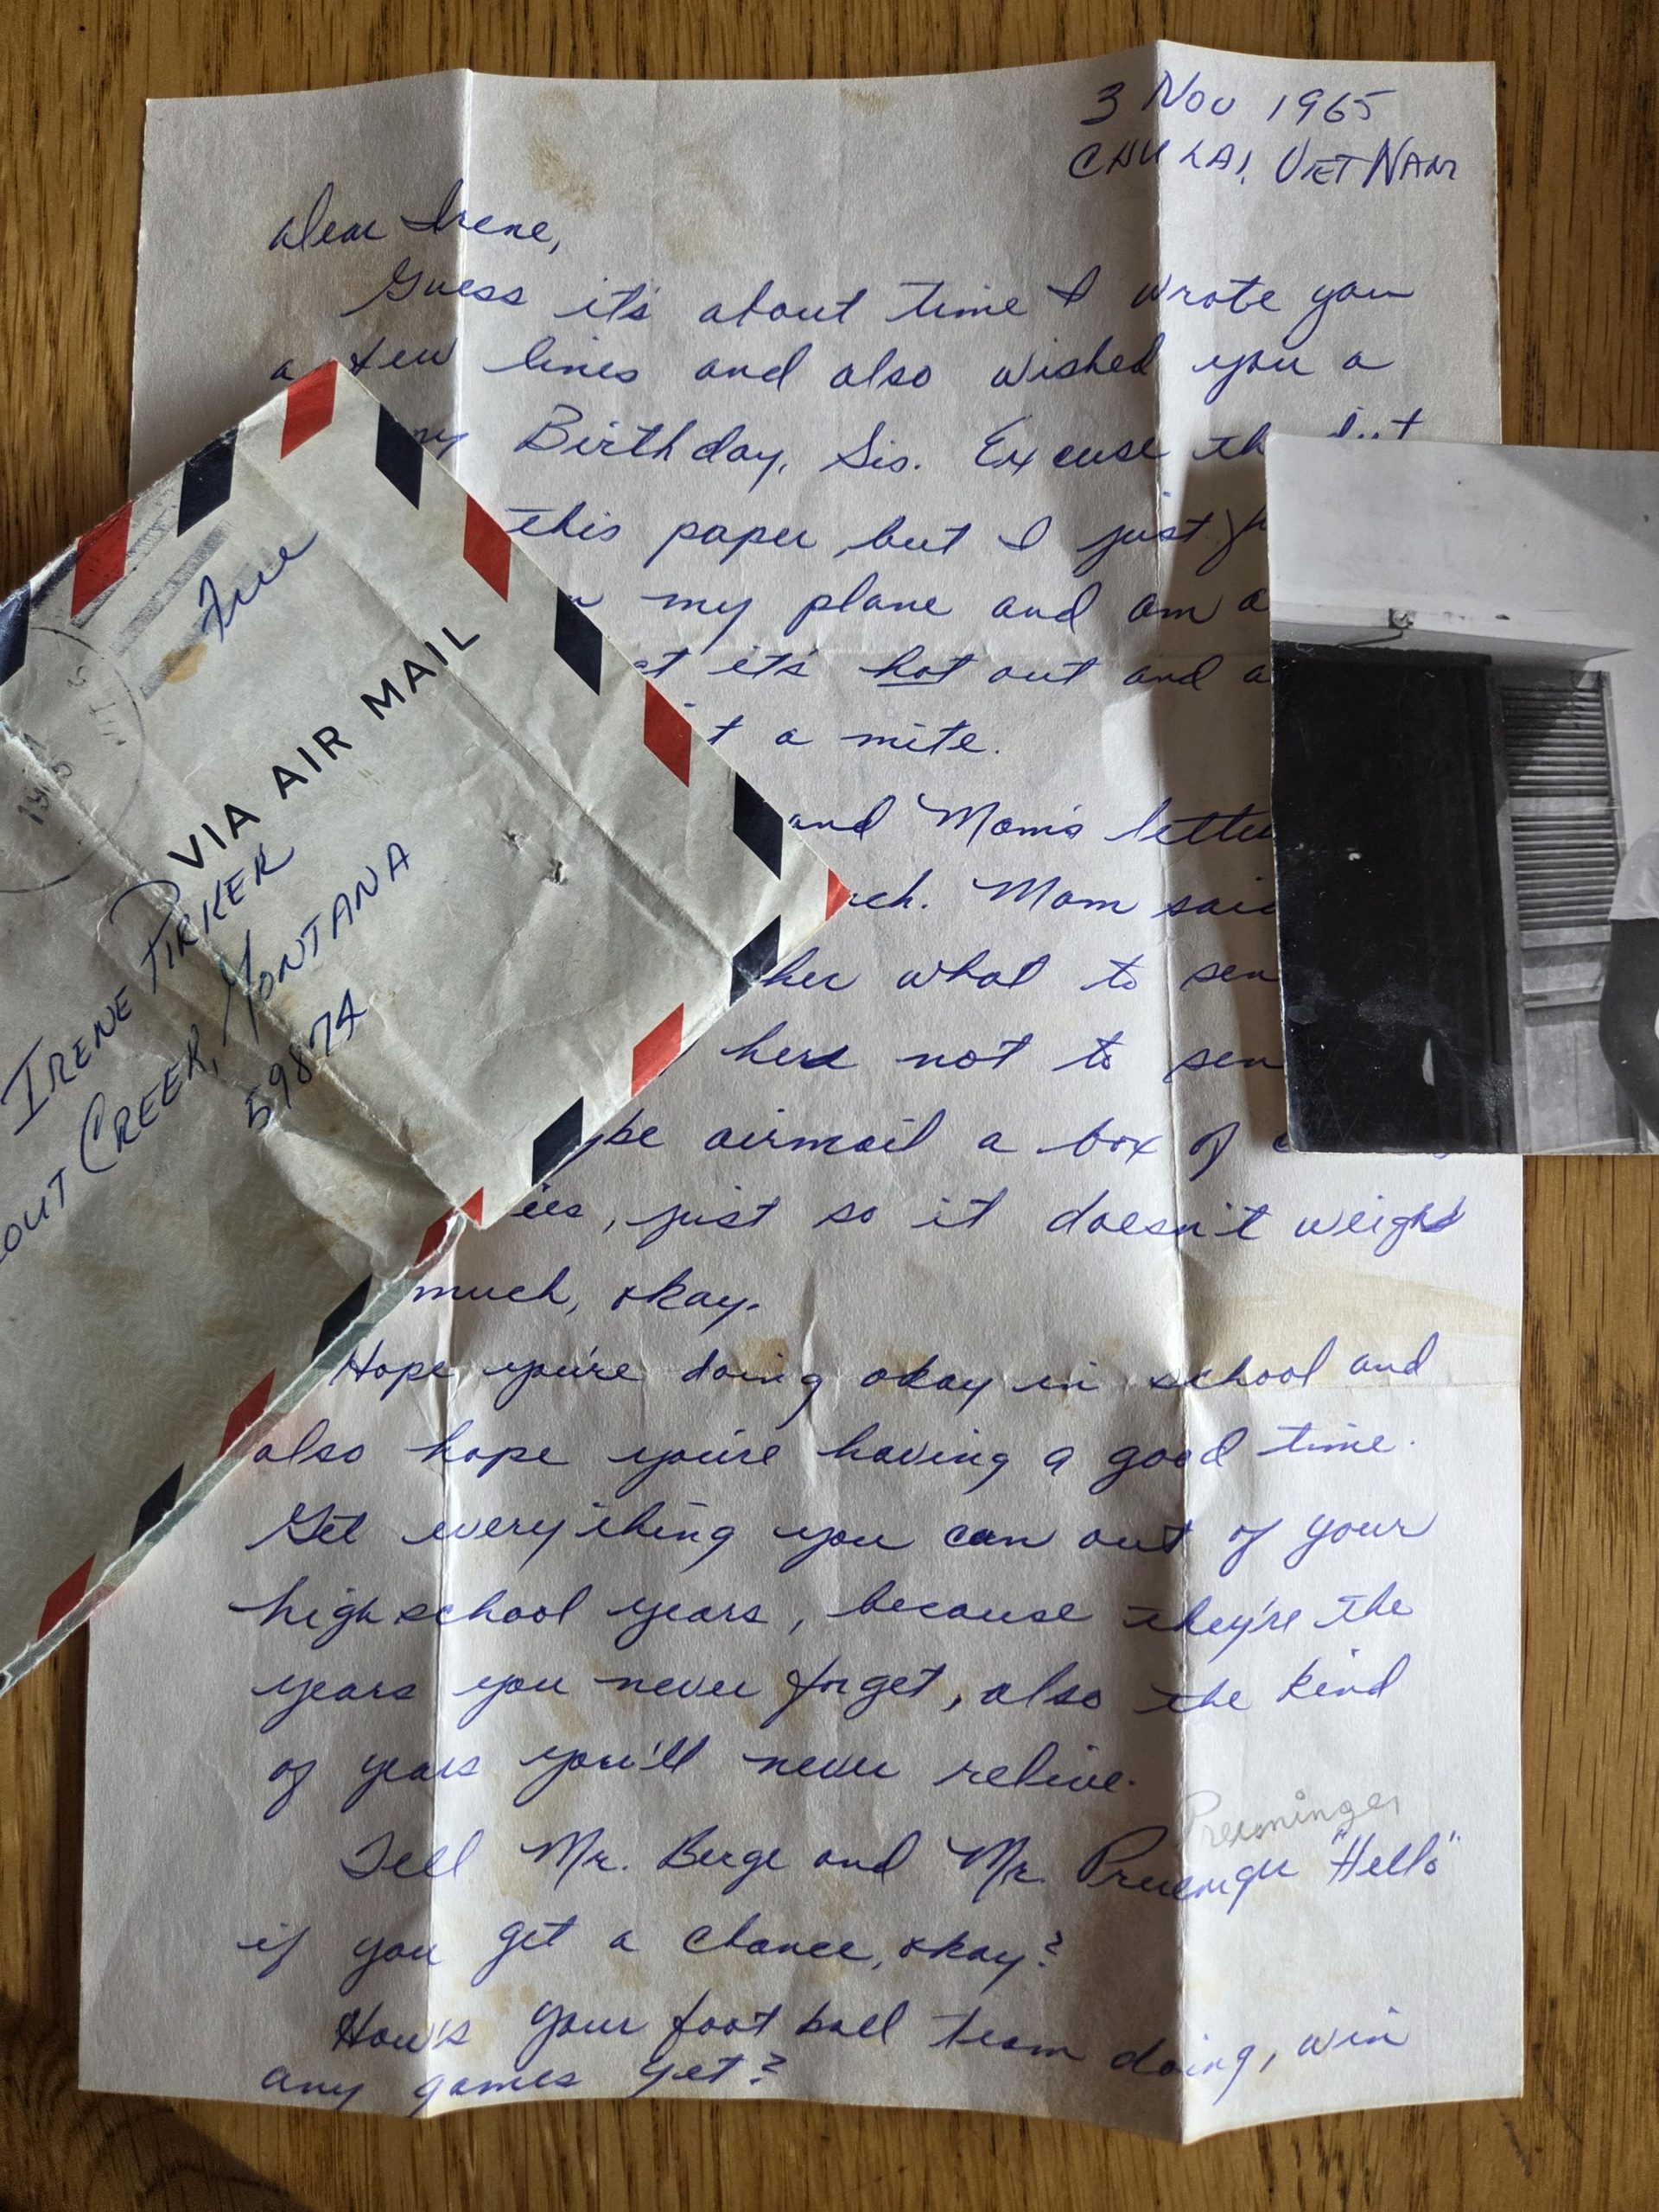 3 Nov 1965
CHU LAI, VIET NAM
Dear Irene,
Guess it's about time I wrote you
a few lines and also wished you a
Birthday, Sis. Excuse
this paper but I just
my plane and am
it's hot out and
a mite.
and Mom's
Mom
her what to
here not to
airmail a box of
just so it doesn't weigh
much, okay.
Hope you're doing okay in school and
also hope you're having a good time.
Get everything you can out of your
high school years, because they're the
years you never forget, also the kind
of years you'll never relive.
Preuninger
Tell Mr. Berge and Mr. "Hello"
if you get a chance, okay?
How's your foot ball team doing, win
any games yet?
Free
VIA AIR MAIL
IRENE PIRKER
CREEK, MONTANA
59874